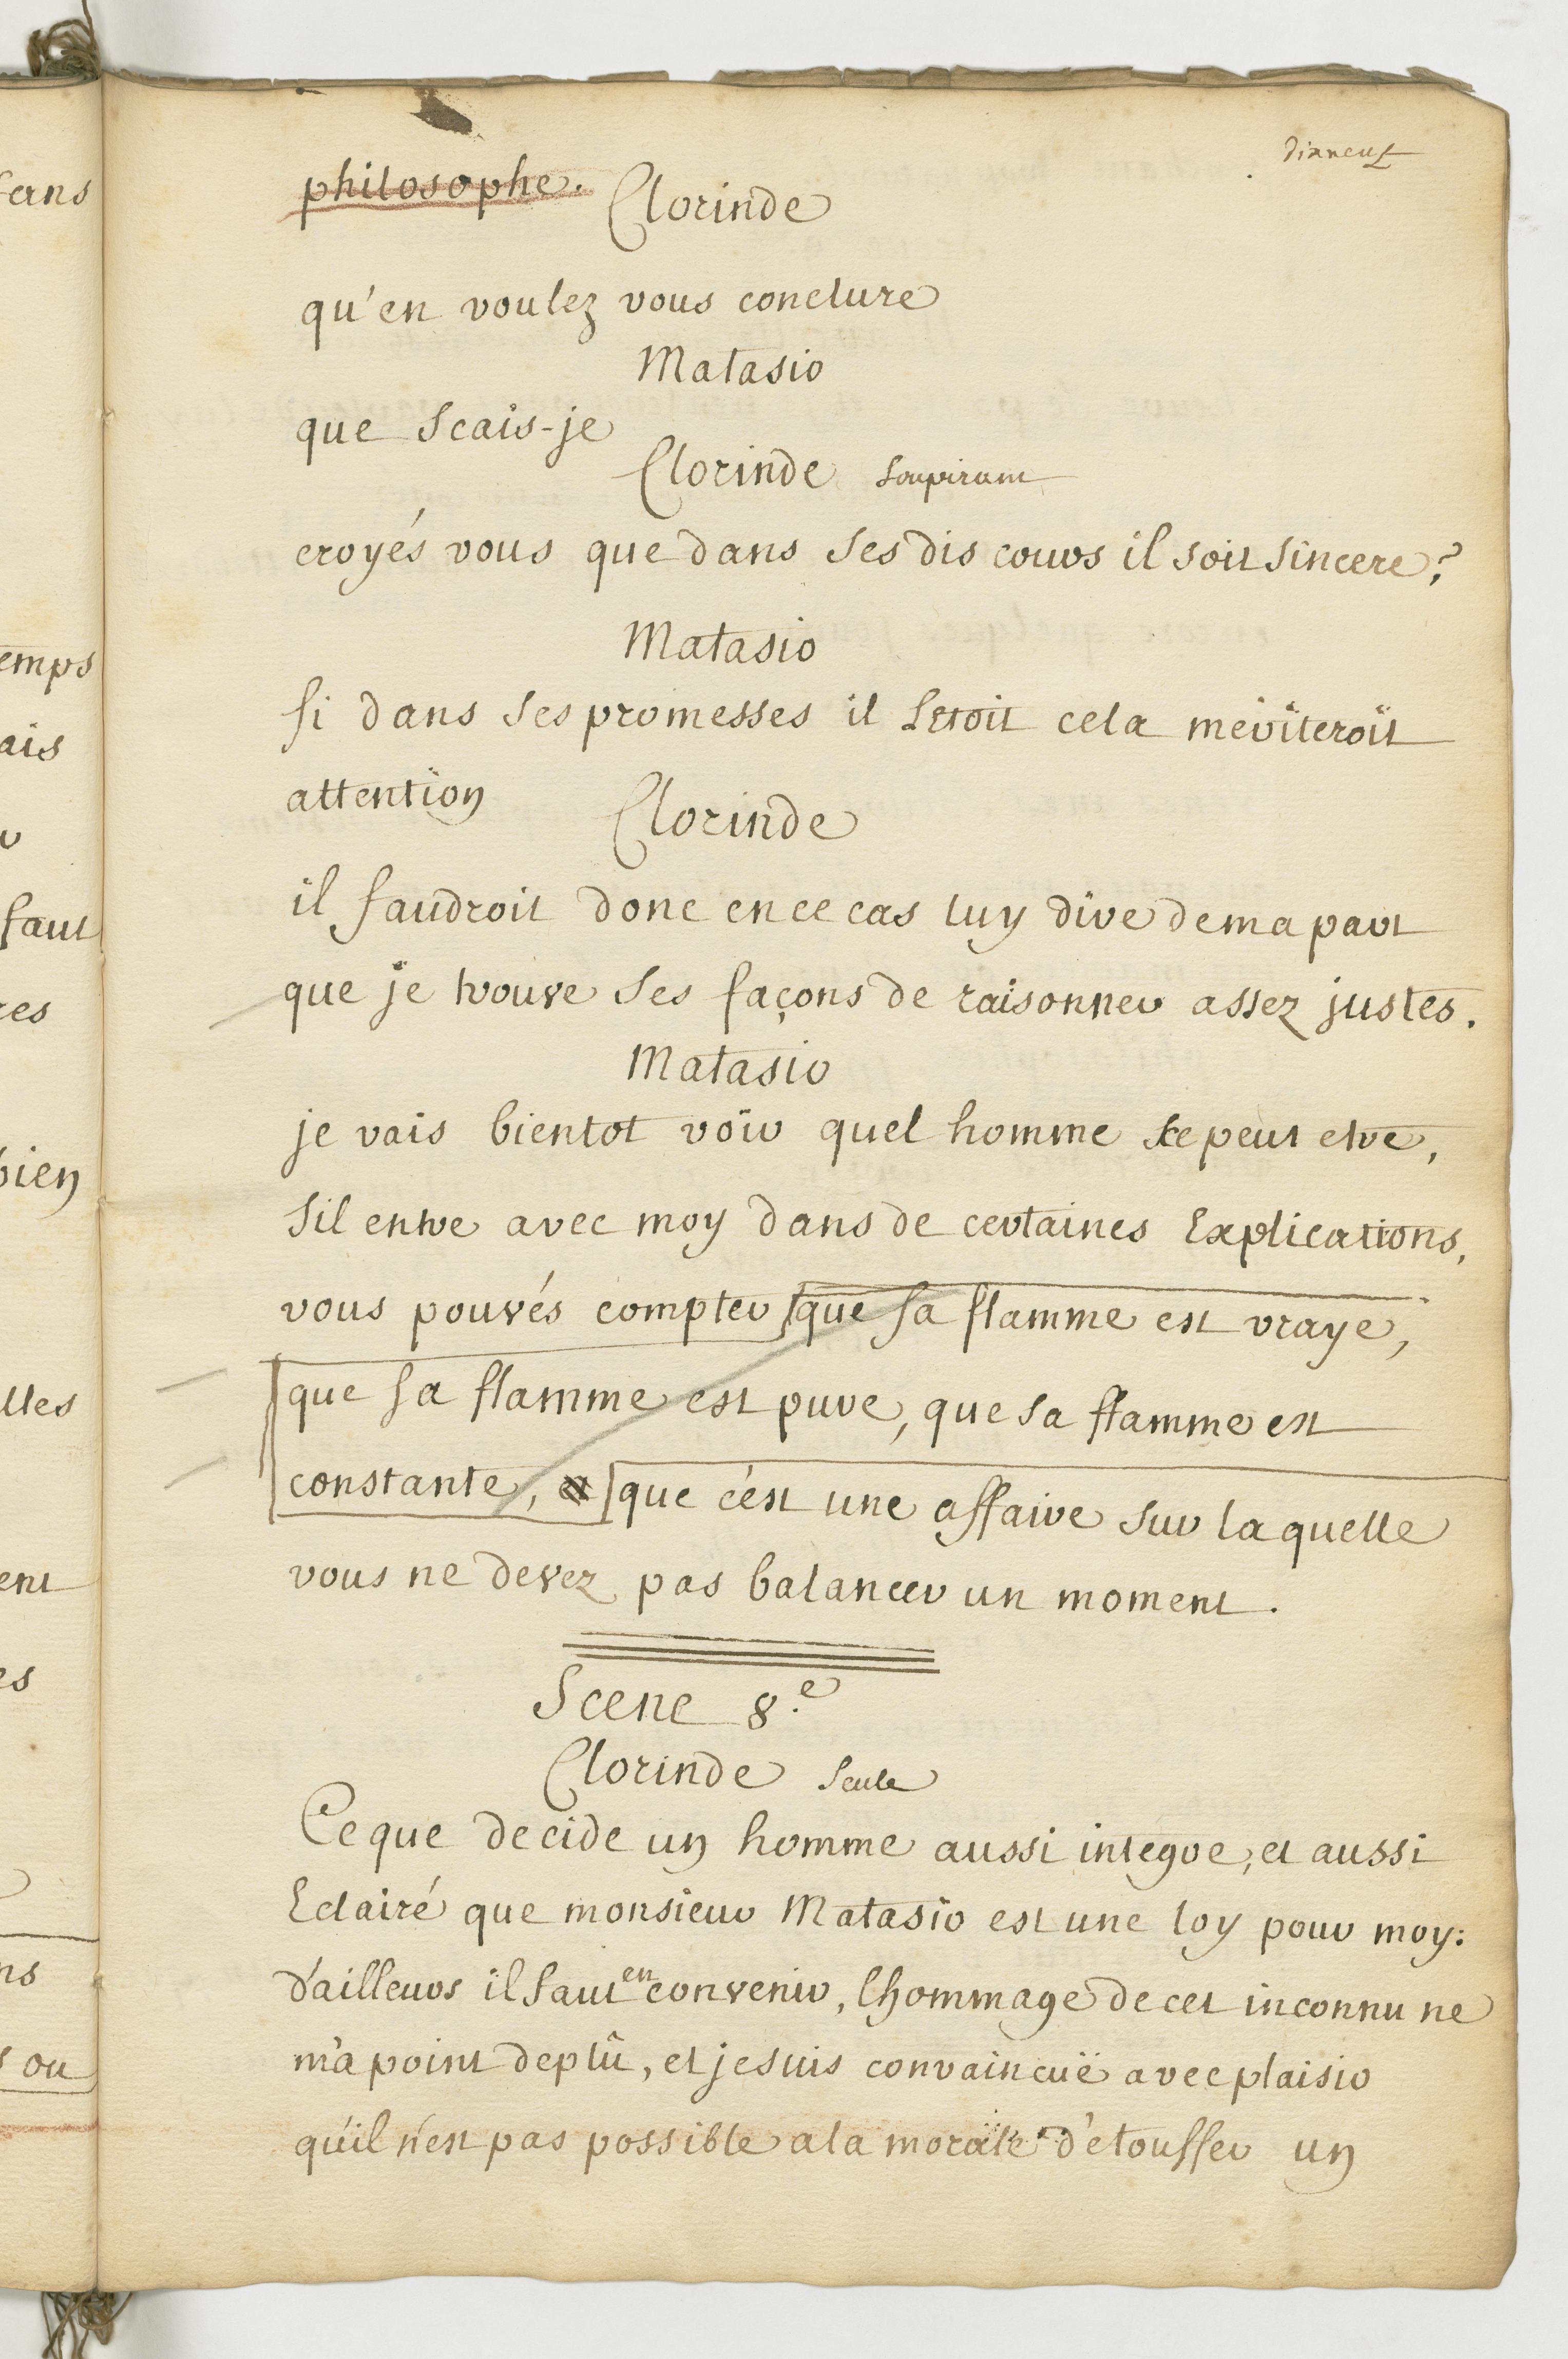 dixneuf
philosophe.
Clorinde
qu'en voulez vous conclure
Matasio
que scais-je
Clorinde soupirant
croyés vous que dans ses discours il soit sincere?
Matasio
si dans ses promesses il letoit cela meriteroit
attention
Clorinde
il faudroit donc en ce cas luy dire de ma part
que je trouve ses façons de raisonner assez justes.
Matasio
je vais bientot voir quel homme ce peut etre,
sil entre avec moy dans de certaines Explications,
vous pouvés compter que sa flamme est vraye,
que sa flamme est pure, que sa flamme est
constante, et que c'est une affaire sur laquelle
vous ne devez pas balancer un moment.
Scene 8.e
Clorinde seule
Ce que decide un homme aussi integre, et aussi
Eclairé que monsieur Matasio est une loy pour moy:
d'ailleurs il faut en convenir, lhommage de cet inconnu ne
m'a point deplû, et je suis convaincuë avec plaisir
qu'il n'est pas possible a la morale d'etouffer un
fans
temps
ais
faut
res
bien
elles
ent
es
ns
ou